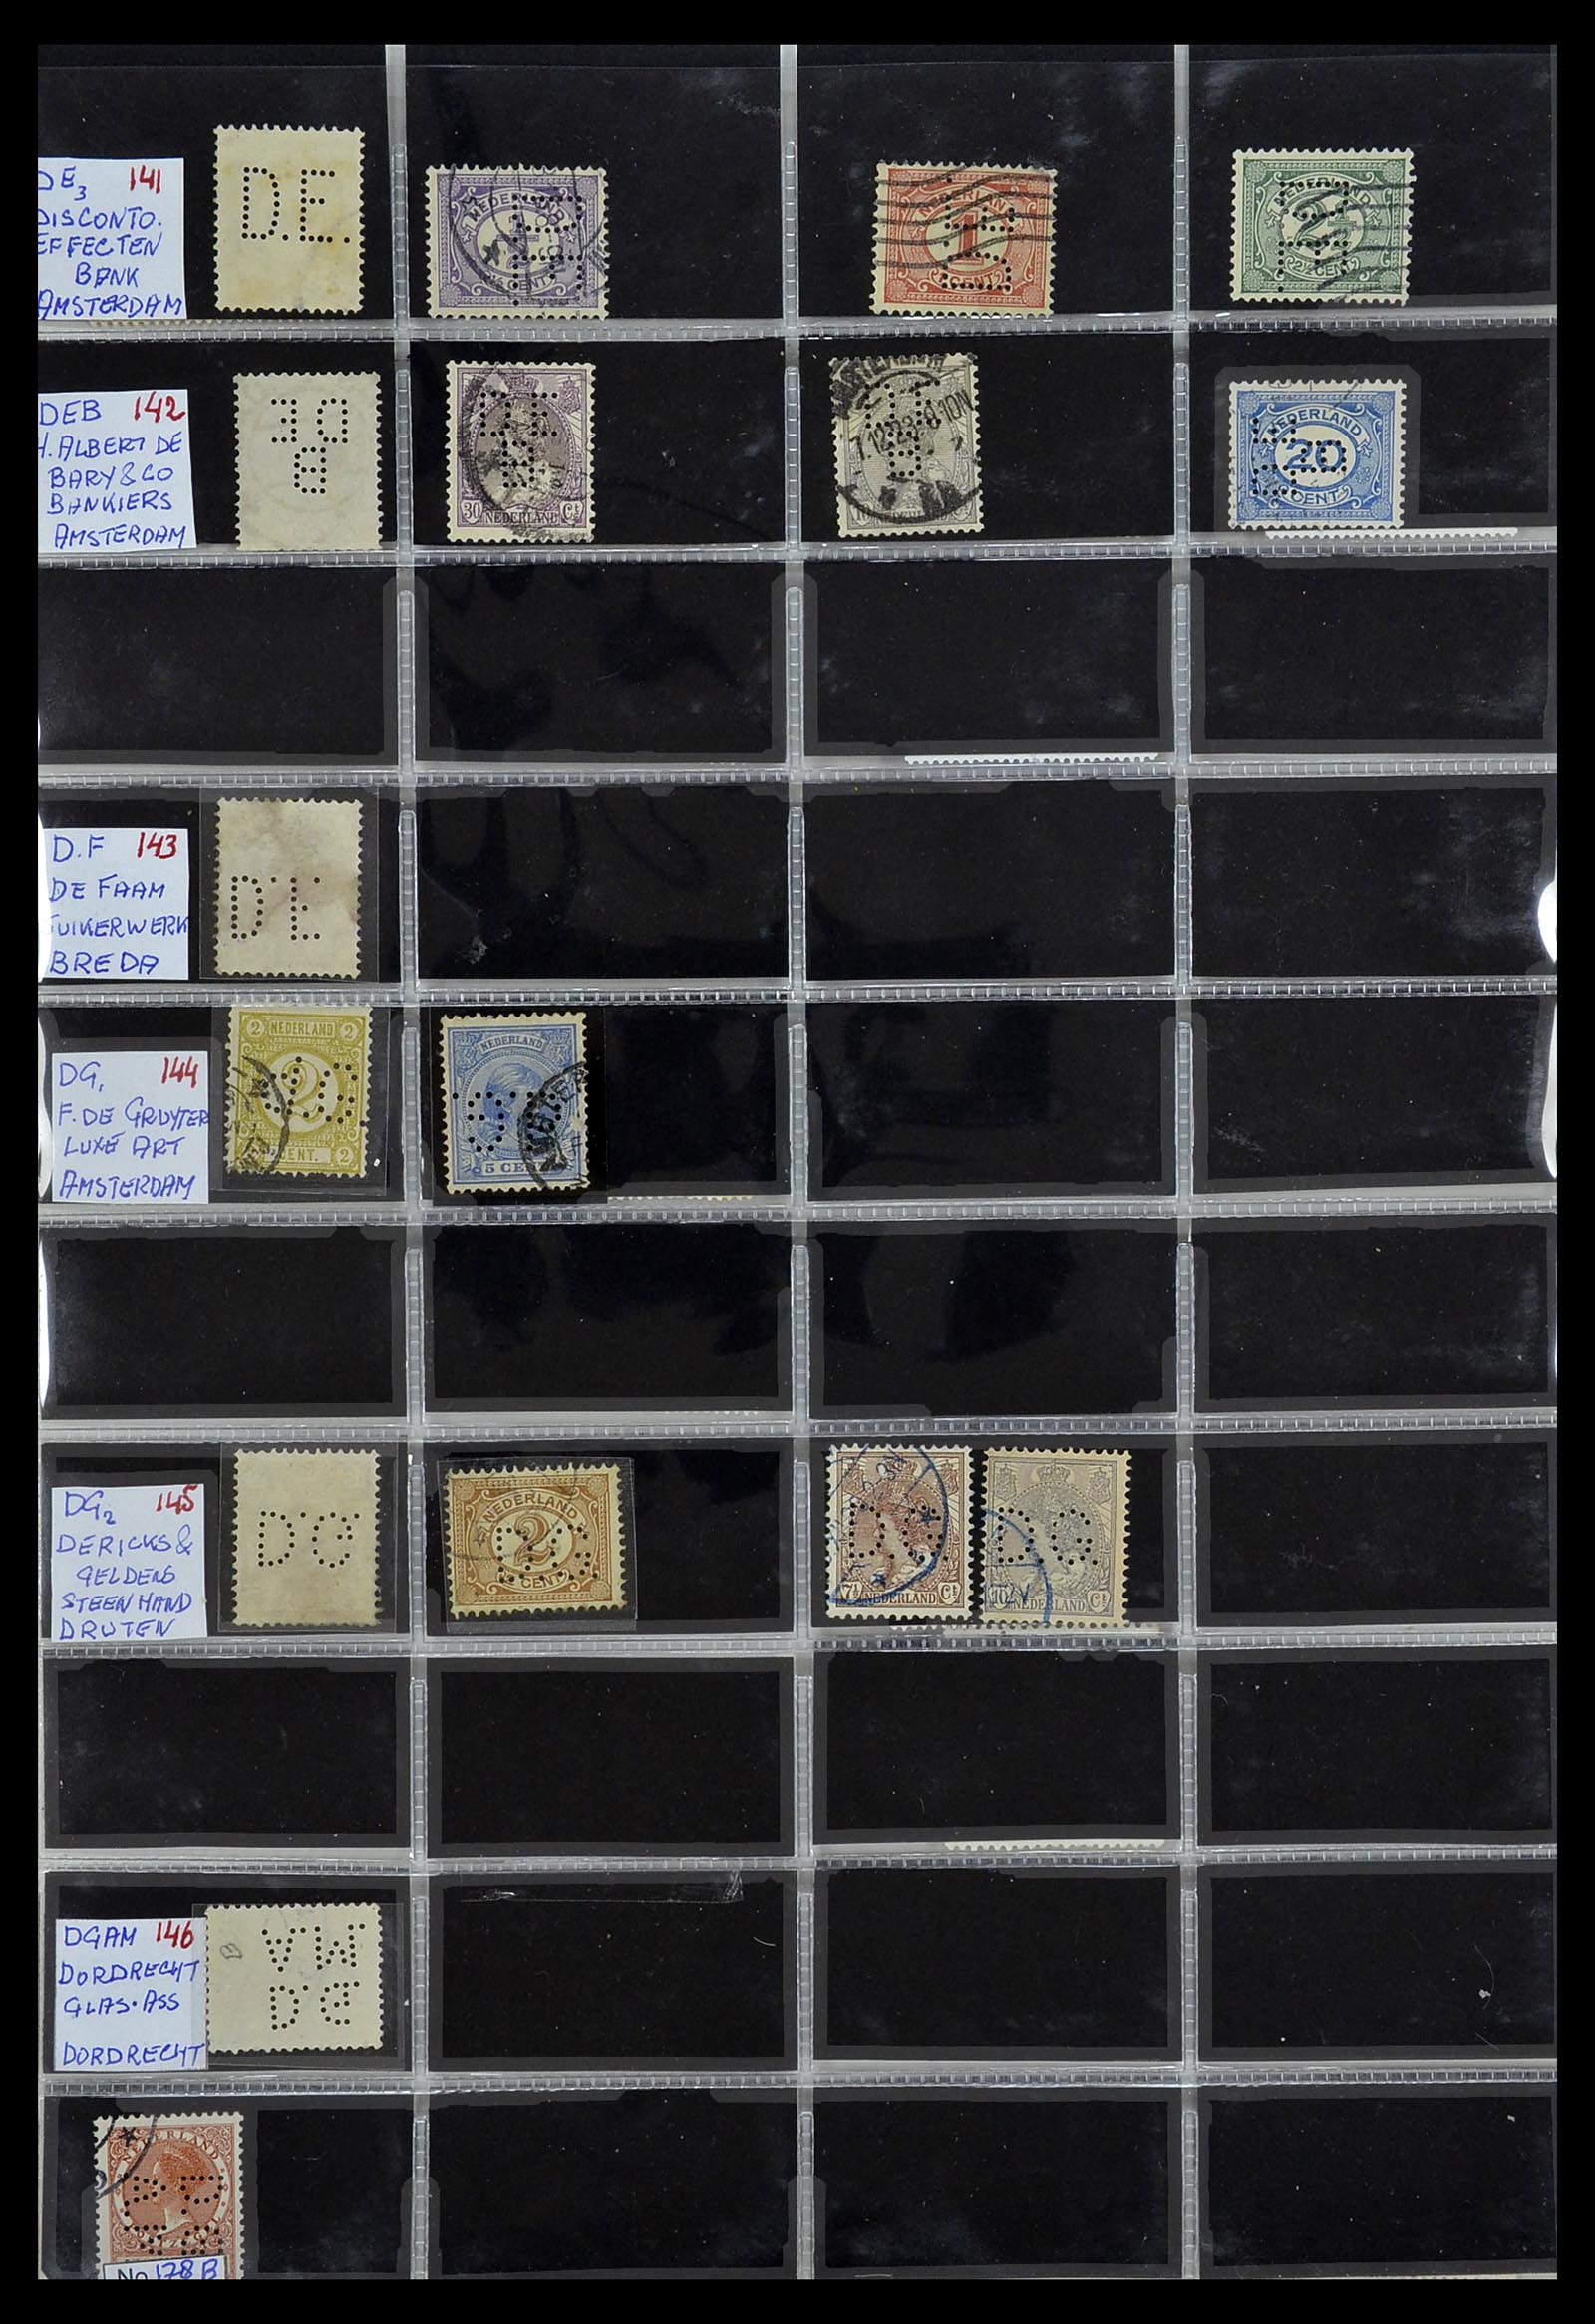 DE3 141
DISCONTO.
EFFECTEN
BANK
AMSTERDAM
D.E.
NEDERLAND
CENT
NEDERLAND
1
CENT
2½ CENT
DEB 142
H. ALBERT DE
BARY & CO
BANKIERS
AMSTERDAM
DE
B
DE
B
30 NEDERLAND Ct
7.12.23.8 10N
NEDERLAND
20
CENT
D.F 143
DE FAAM
SUIKERWERK
BREDA
DG, 144
F. DE GRUYTER
LUXE ART
AMSTERDAM
2 NEDERLAND 2
2
CENT. 2
NEDERLAND
5 CENT
DG2 145
DERICKS &
GELDENS
STEENHAND
DRUTEN
DG
NEDERLAND
2
CENT
DG
7½ NEDERLAND Ct
DG
10 NEDERLAND Ct
DGAM 146
DORDRECHT
GLAS. ASS
DORDRECHT
NEDERLAND
No 178 B